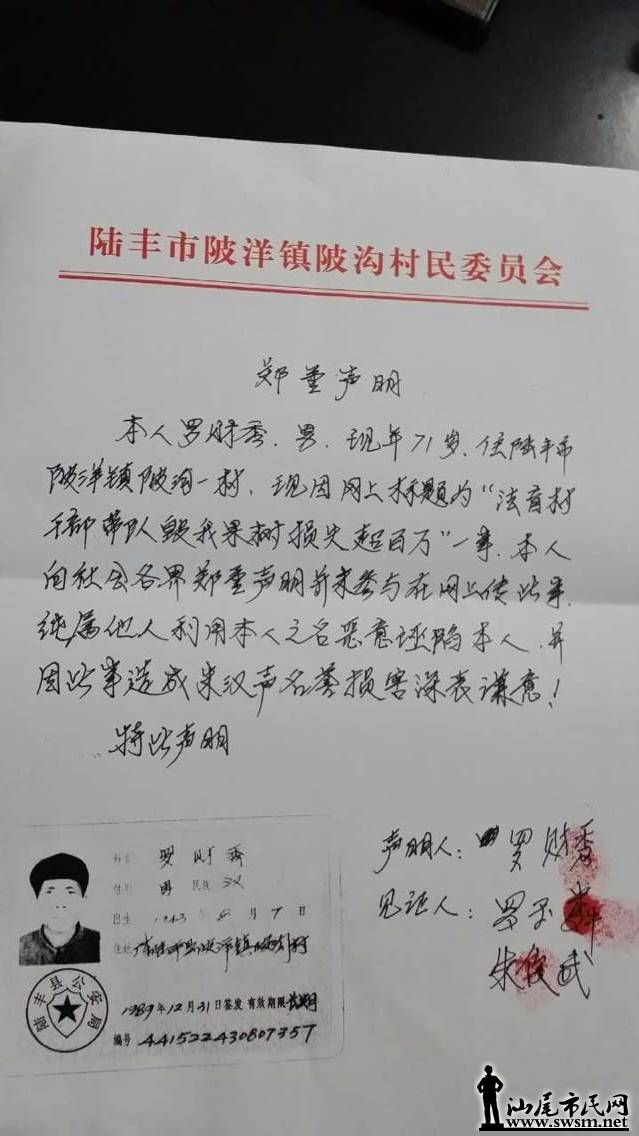 陆丰市陂洋镇陂沟村民委员会
郑重声明
本人罗财秀、男、现年71岁、住陆丰市
陂洋镇陂沟一村、现因网上标题为“法盲村
干部带队毁我果树损失超百万”一事、本人
向社会各界郑重声明并未参与在网上传此事、
纯属他人利用本人之名恶意诬陷本人、并
因此事造成朱汉声名誉损害深表谦意！
特此声明
声明人：罗财秀
见证人：罗
朱俊武
姓名 罗财秀
性别 男 民族 汉
出生 1943年8月7日
住址 陂洋镇
1989年12月31日签发 有效期限长期
编号 441522430807357
陆丰县公安局
汕尾市民网
www.swsm.net